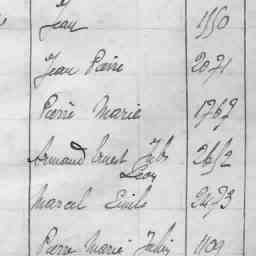 Jean 1950
Jean Pierre 2071
Pierre Marie 1767
Armand Ernest Jules 2652
Léon
Marcel Emile 2473
Pierre Marie Julien 1109